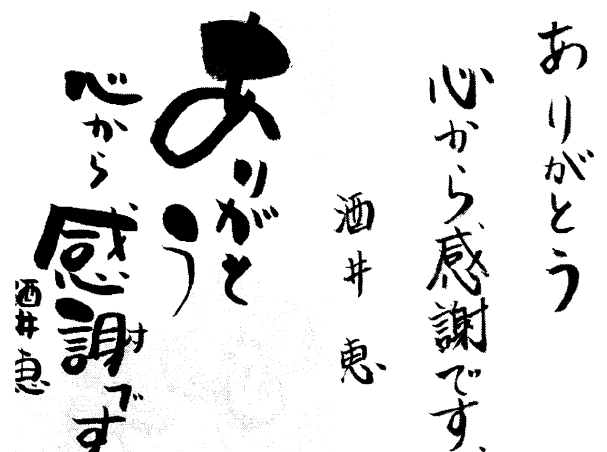 ありがとう
心から感謝です、
酒井 恵
ありがとう
心から感謝です
酒井恵